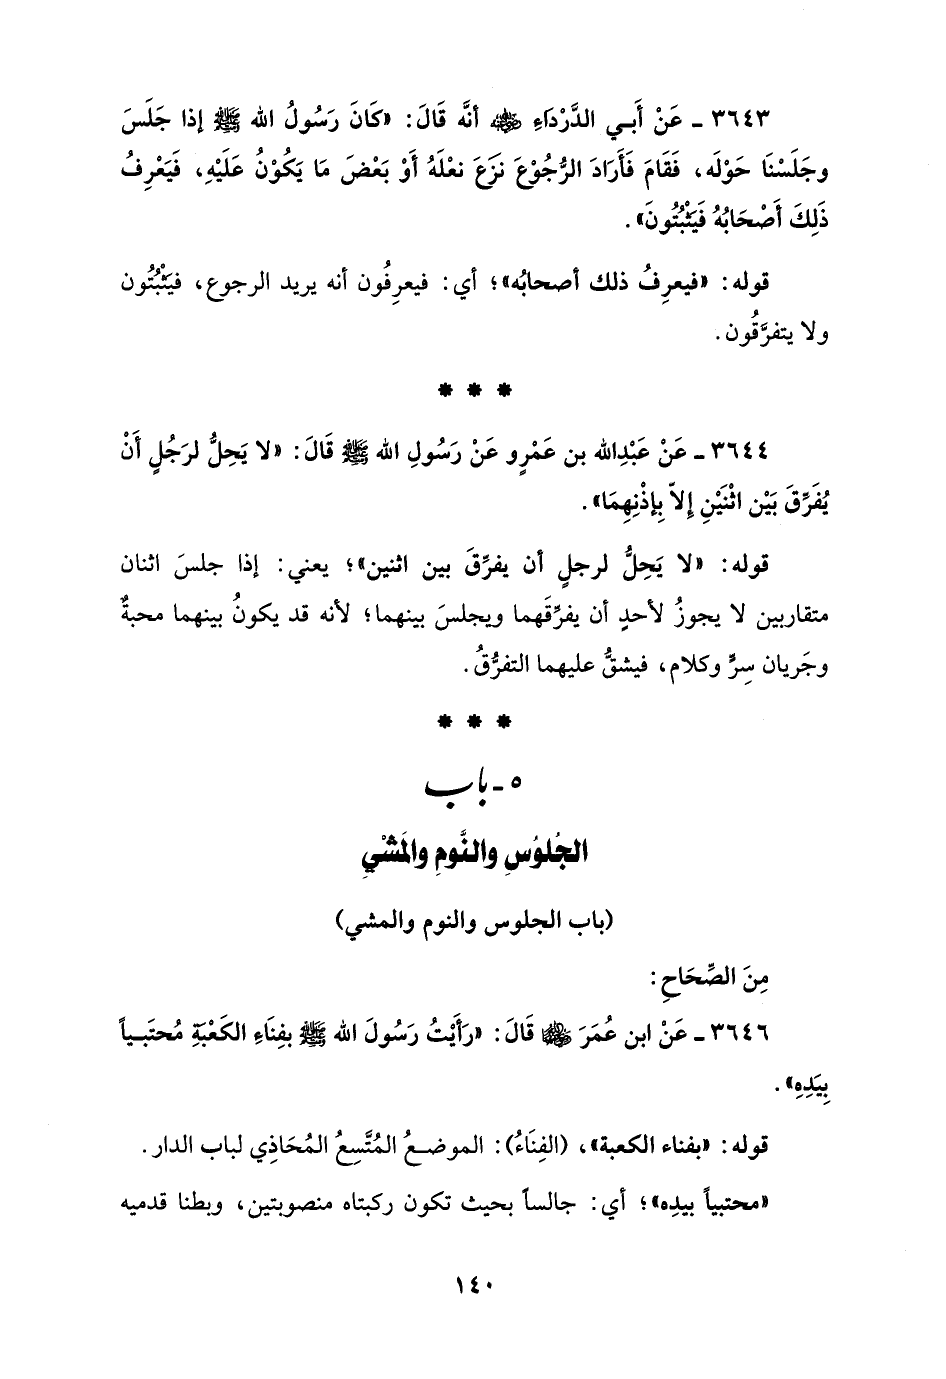 ٣٦٤٣ ـ عَنْ أَبـي الدَّرْدَاءِ ﷺ أنَّه قَالَ: «كَانَ رَسُولُ الله ﷺ إذا جَلَسَ
وجَلَسْنَا حَوْلَه، فَقَامَ فَأَرَادَ الرُّجُوْعَ نَزَعَ نعْلَهُ أَوْ بَعْضَ مَا يَكُوْنُ عَلَيْهِ، فَيَعْرِفُ
ذَلِكَ أَصْحَابُهُ فَيَثْبُتُونَ».
قوله: «فيعرِفُ ذلك أصحابُه»؛ أي: فيعرِفُون أنه يريد الرجوع، فيَثْبُتُون
ولا يتفرَّقُون.
* * *
٣٦٤٤ ـ عَنْ عَبْدِالله بن عَمْرٍو عَنْ رَسُولِ الله ﷺ قَالَ: «لا يَحِلُّ لرَجُلٍ أَنْ
يُفَرِّقَ بَيْن اثْنَيْنِ إِلاّ بِإذْنِهِمَا».
قوله: «لا يَحِلُّ لرجلٍ أن يفرِّقَ بين اثنين»؛ يعني: إذا جلسَ اثنان
متقاربين لا يجوزُ لأحدٍ أن يفرِّقَهما ويجلسَ بينهما؛ لأنه قد يكونُ بينهما محبةٌ
وجَريان سِرٍّ وكلام، فيشقُّ عليهما التفرُّقُ.
* * *
٥ ـ باب
الجُلوُسِ والنَّومِ والمَشْيِ
(باب الجلوس والنوم والمشي)
مِنَ الصِّحَاحِ:
٣٦٤٦ ـ عَنْ ابن عُمَرَ قَالَ: «رَأَيْتُ رَسُولَ الله ﷺ بفِنَاءِ الكَعْبَةِ مُحتَبـياً
بِيَدِهِ».
قوله: «بفناء الكعبة»، (الفِنَاءُ): الموضـعُ المُتَّسِعُ المُحَاذِي لباب الدار.
«محتبياً بيدِه»؛ أي: جالساً بحيث تكون ركبتاه منصوبتين، وبطنا قدميه
١٤٠